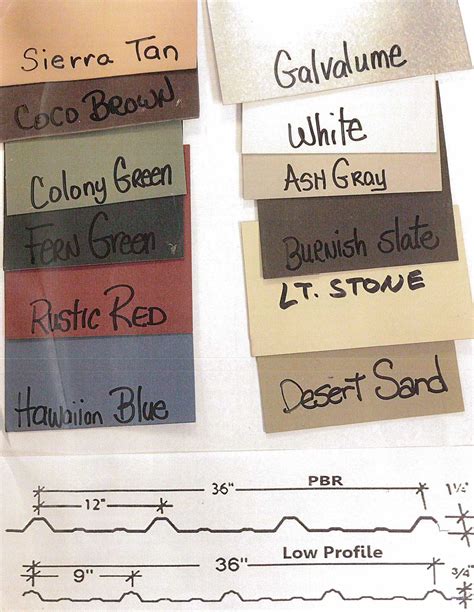 Sierra Tan
Coco Brown
Colony Green
Fern Green
Rustic Red
Hawaiion Blue
Galvalume
White
Ash Gray
Burnish slate
LT. STONE
Desert Sand
36" PBR 1½"
12"
36" Low Profile 3/4"
9"